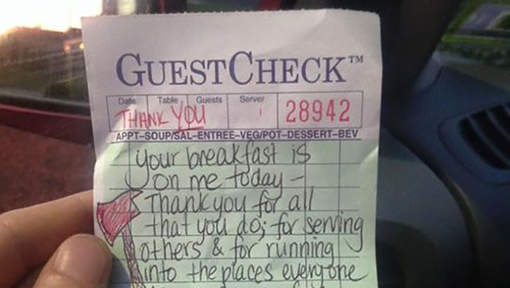 GUESTCHECK™
Date Table Guests Server
THANK YOU 28942
APPT-SOUP/SAL-ENTREE-VEG/POT-DESSERT-BEV
your breakfast is
on me today -
Thank you for all
that you do; for serving
others & for running
into the places everyone